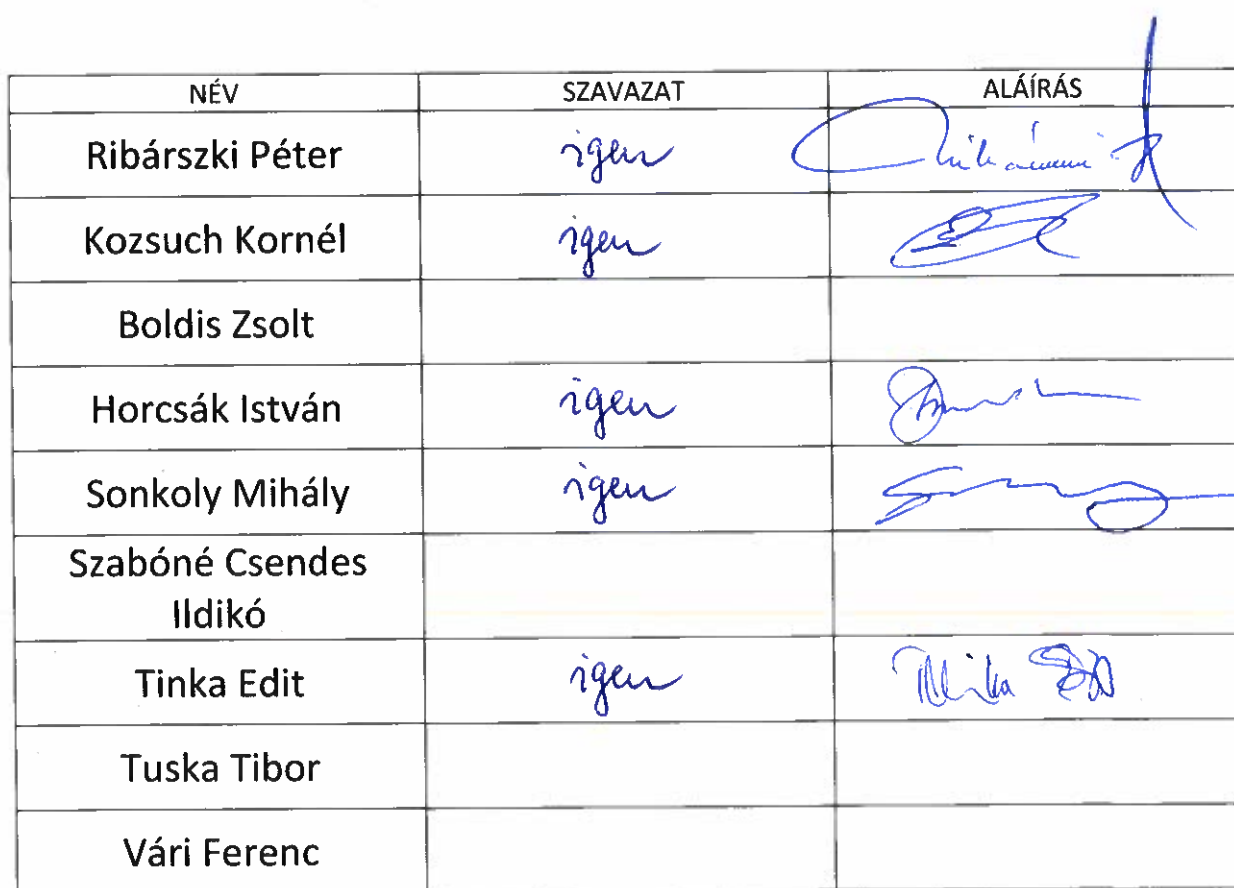 NÉV SZAVAZAT ALÁÍRÁS
Ribárszki Péter igen
Kozsuch Kornél igen
Boldis Zsolt
Horcsák István igen
Sonkoly Mihály igen
Szabóné Csendes
Ildikó
Tinka Edit igen Tinka Edit
Tuska Tibor
Vári Ferenc